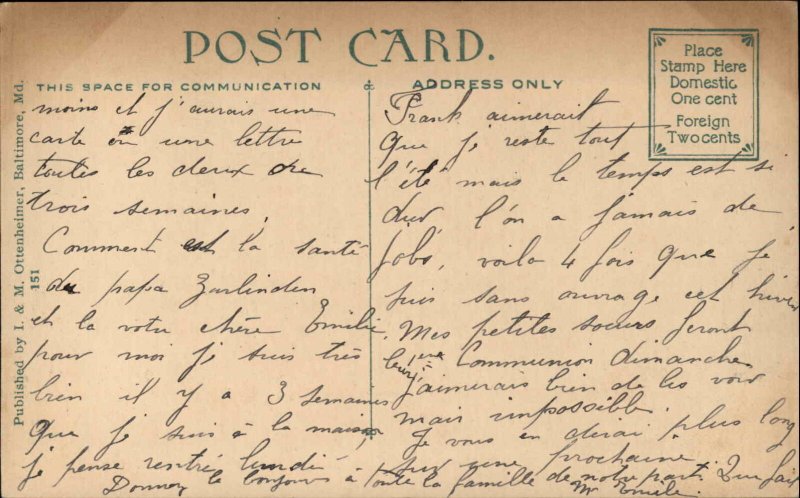 POST CARD.
THIS SPACE FOR COMMUNICATION
ADDRESS ONLY
Place
Stamp Here
Domestic
One cent
Foreign
Two cents
Published by I. & M. Ottenheimer, Baltimore, Md.
151
moins et j'aurais une
carte ou une lettre
toutes les deux ou
trois semaines.
Comment est la santé
du papa Zarlinden
et la votre chère Emilie.
pour moi je suis très
bien il y a 3 semaines
que je suis à la maison
je pense rentré lundi
Frank aimerait
que je reste tout
l'été mais le temps est si
dur l'on a jamais de
Jobs, voila 4 fois que je
suis sans ouvrage cet hiver
Mes petites soeurs feront
leur 1ère Communion dimanche
j'aimerais bien de les voir
mais impossible.
Je vous en dirai plus long
sur une prochaine.
Donnez le bonjours à toute la famille de notre part.
Mr Emile